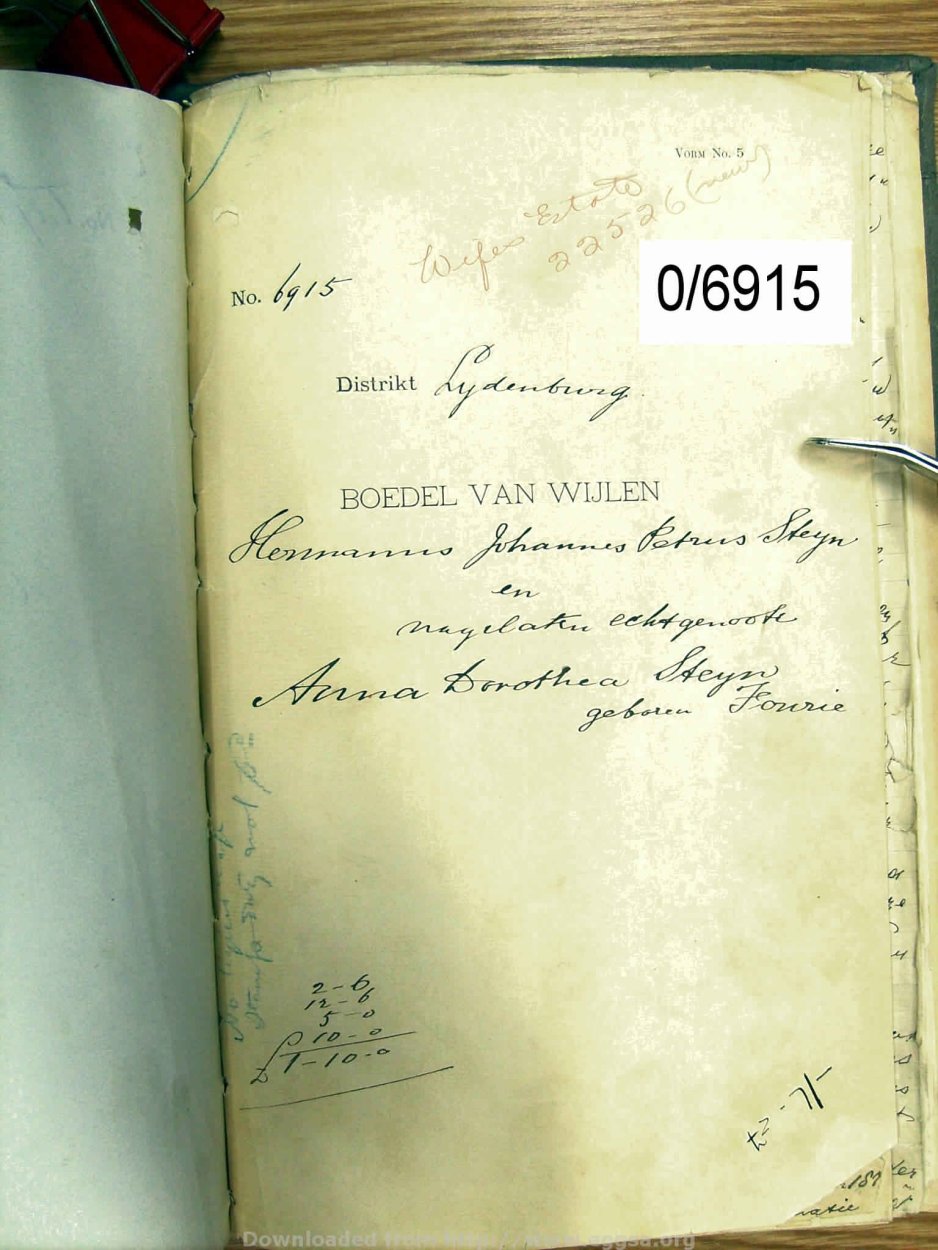 Vorm No. 5
Wifes Estate
22526 (new)
No. 6915
0/6915
Distrikt Lydenburg.
BOEDEL VAN WIJLEN
Hermanus Johannes Petrus Steyn
en
nagelaten echtgenoote
Anna Dorothea Steyn
geboren Fourie
2-6
12-6
5-0
10-0
£1-10-0
Downloaded from http://www.eggsa.org